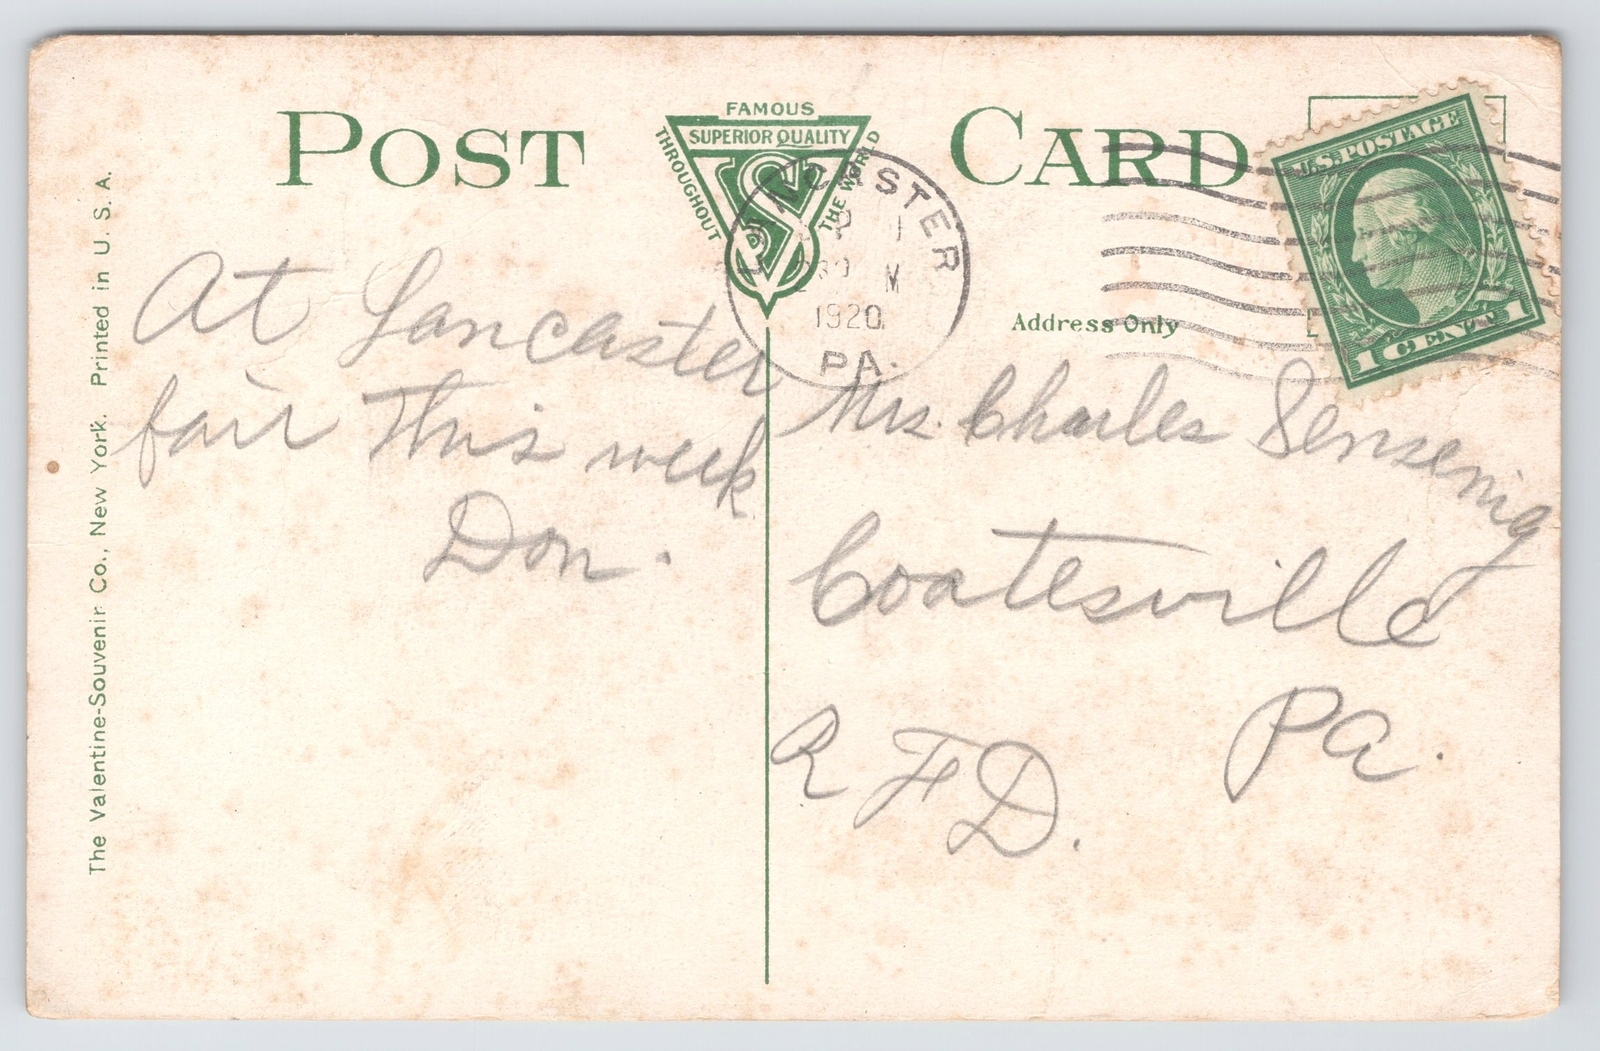 POST CARD
FAMOUS
SUPERIOR QUALITY
THROUGHOUT
THE WORLD
VS
LANCASTER
1
30 M
1920
PA.
U.S. POSTAGE
1 CENT 1
Address Only
At Lancaster
fair This week
Don.
Mrs. Charles Sensenig
Coatesville
Pa.
R F D.
The Valentine-Souvenir Co., New York. Printed in U. S. A.